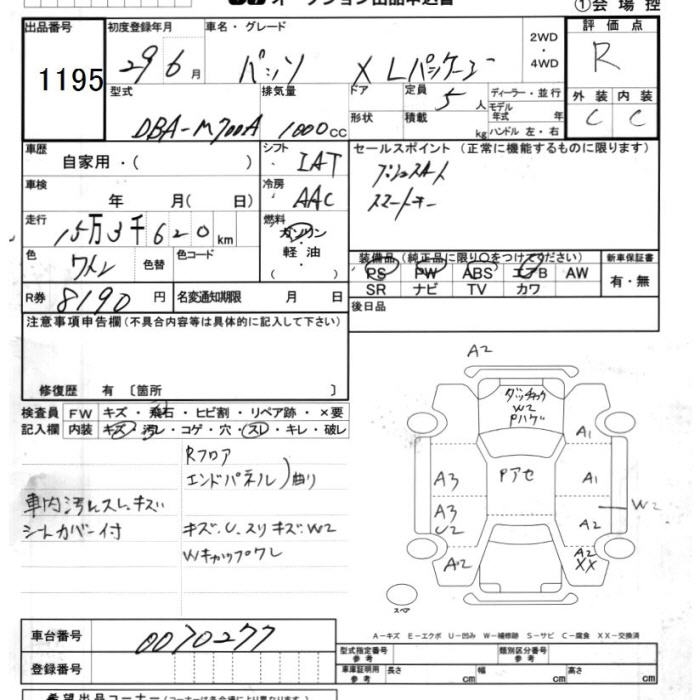 オークション出品申込書
①会場控
出品番号 1195
初度登録年月 29 6月
車名・グレード パッソ X Lパッケージ
2WD・4WD
評価点 R
外装 C 内装 C
型式 DBA-M700A
排気量 1000cc
ドア 形状
定員 5人
積載 kg
ディーラー・並行
モデル年式 年
ハンドル 左・右
車歴 自家用・( )
シフト IAT
冷房 AAC
車検 年 月( 日)
走行 15万3千620km
燃料 ガソリン・軽油・( )
色 ワイン 色替
色コード
R券 8190円
名変通知期限 月 日
セールスポイント(正常に機能するものに限ります)
プッシュスタート
スマートキー
装備品(純正品に限り○をつけてください)
新車保証書
PS PW ABS エアB AW
有・無
SR ナビ TV カワ
後日品
注意事項申告欄(不具合内容等は具体的に記入して下さい)
修復歴 有〔箇所 〕
検査員記入欄
FW キズ・飛石・ヒビ割・リペア跡・×要
内装 キズ・汚レ・コゲ・穴・スレ・キレ・破レ
Rフロア
エンドパネル)曲り
車内汚レスレ、キズ
シートカバー付
キズ、U、スリキズ、W2
Wキャップワレ
A2
ダッチャク
W2
Pハゲ
A1
A3
Pアセ
A1
A3
U2
W2
A2
A2
A2
XX
スペア
A－キズ E－エクボ U－凹み W－補修跡 S－サビ C－腐食 XX－交換済
車台番号 0070277
登録番号
型式指定番号 参考
類別区分番号 参考
車庫証明用 参考
長さ cm
幅 cm
高さ cm
希望出品コーナー(コーナーは各会場により異なります)